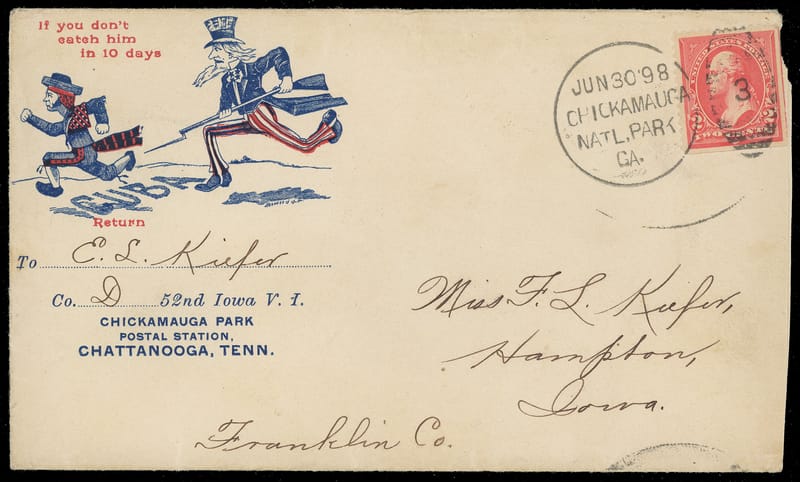 If you don't
catch him
in 10 days
CUBA
Return
To E. L. Kiefer
Co. D 52nd Iowa V. I.
CHICKAMAUGA PARK
POSTAL STATION,
CHATTANOOGA, TENN.
JUN 30 '98
CHICKAMAUGA
NATL. PARK
GA.
3
UNITED STATES POSTAGE
TWO CENTS
Miss F. L. Kiefer,
Hampton,
Iowa.
Franklin Co.